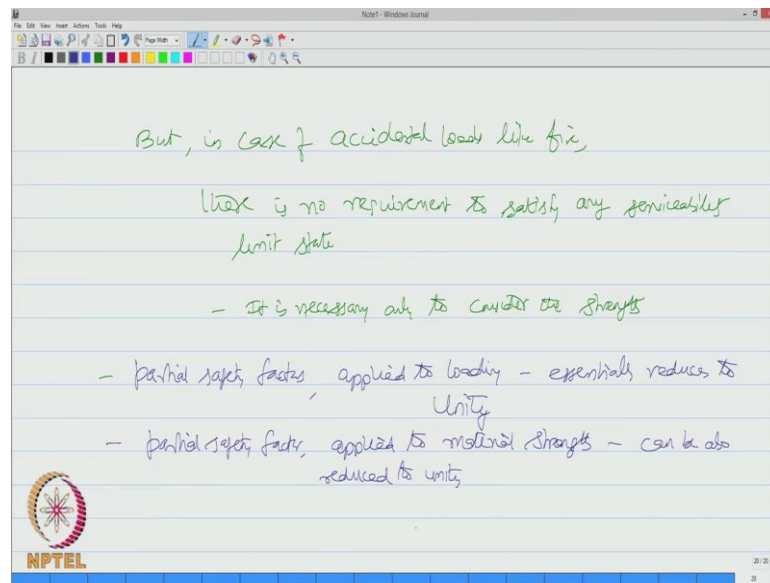 Note1 - Windows Journal
File Edit View Insert Actions Tools Help
Page Width
B I
But, in case of accidental loads like fire,
there is no requirement to satisfy any serviceability
limit state
- It is necessary only to consider the strength
- partial safety factor, applied to loading - essentially reduces to
Unity
- partial safety factor, applied to material strength - can be also
reduced to unity
NPTEL
20 / 20
20